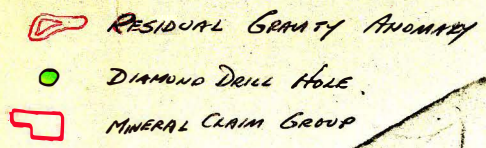 RESIDUAL GRAVITY ANOMALY
DIAMOND DRILL HOLE.
MINERAL CLAIM GROUP